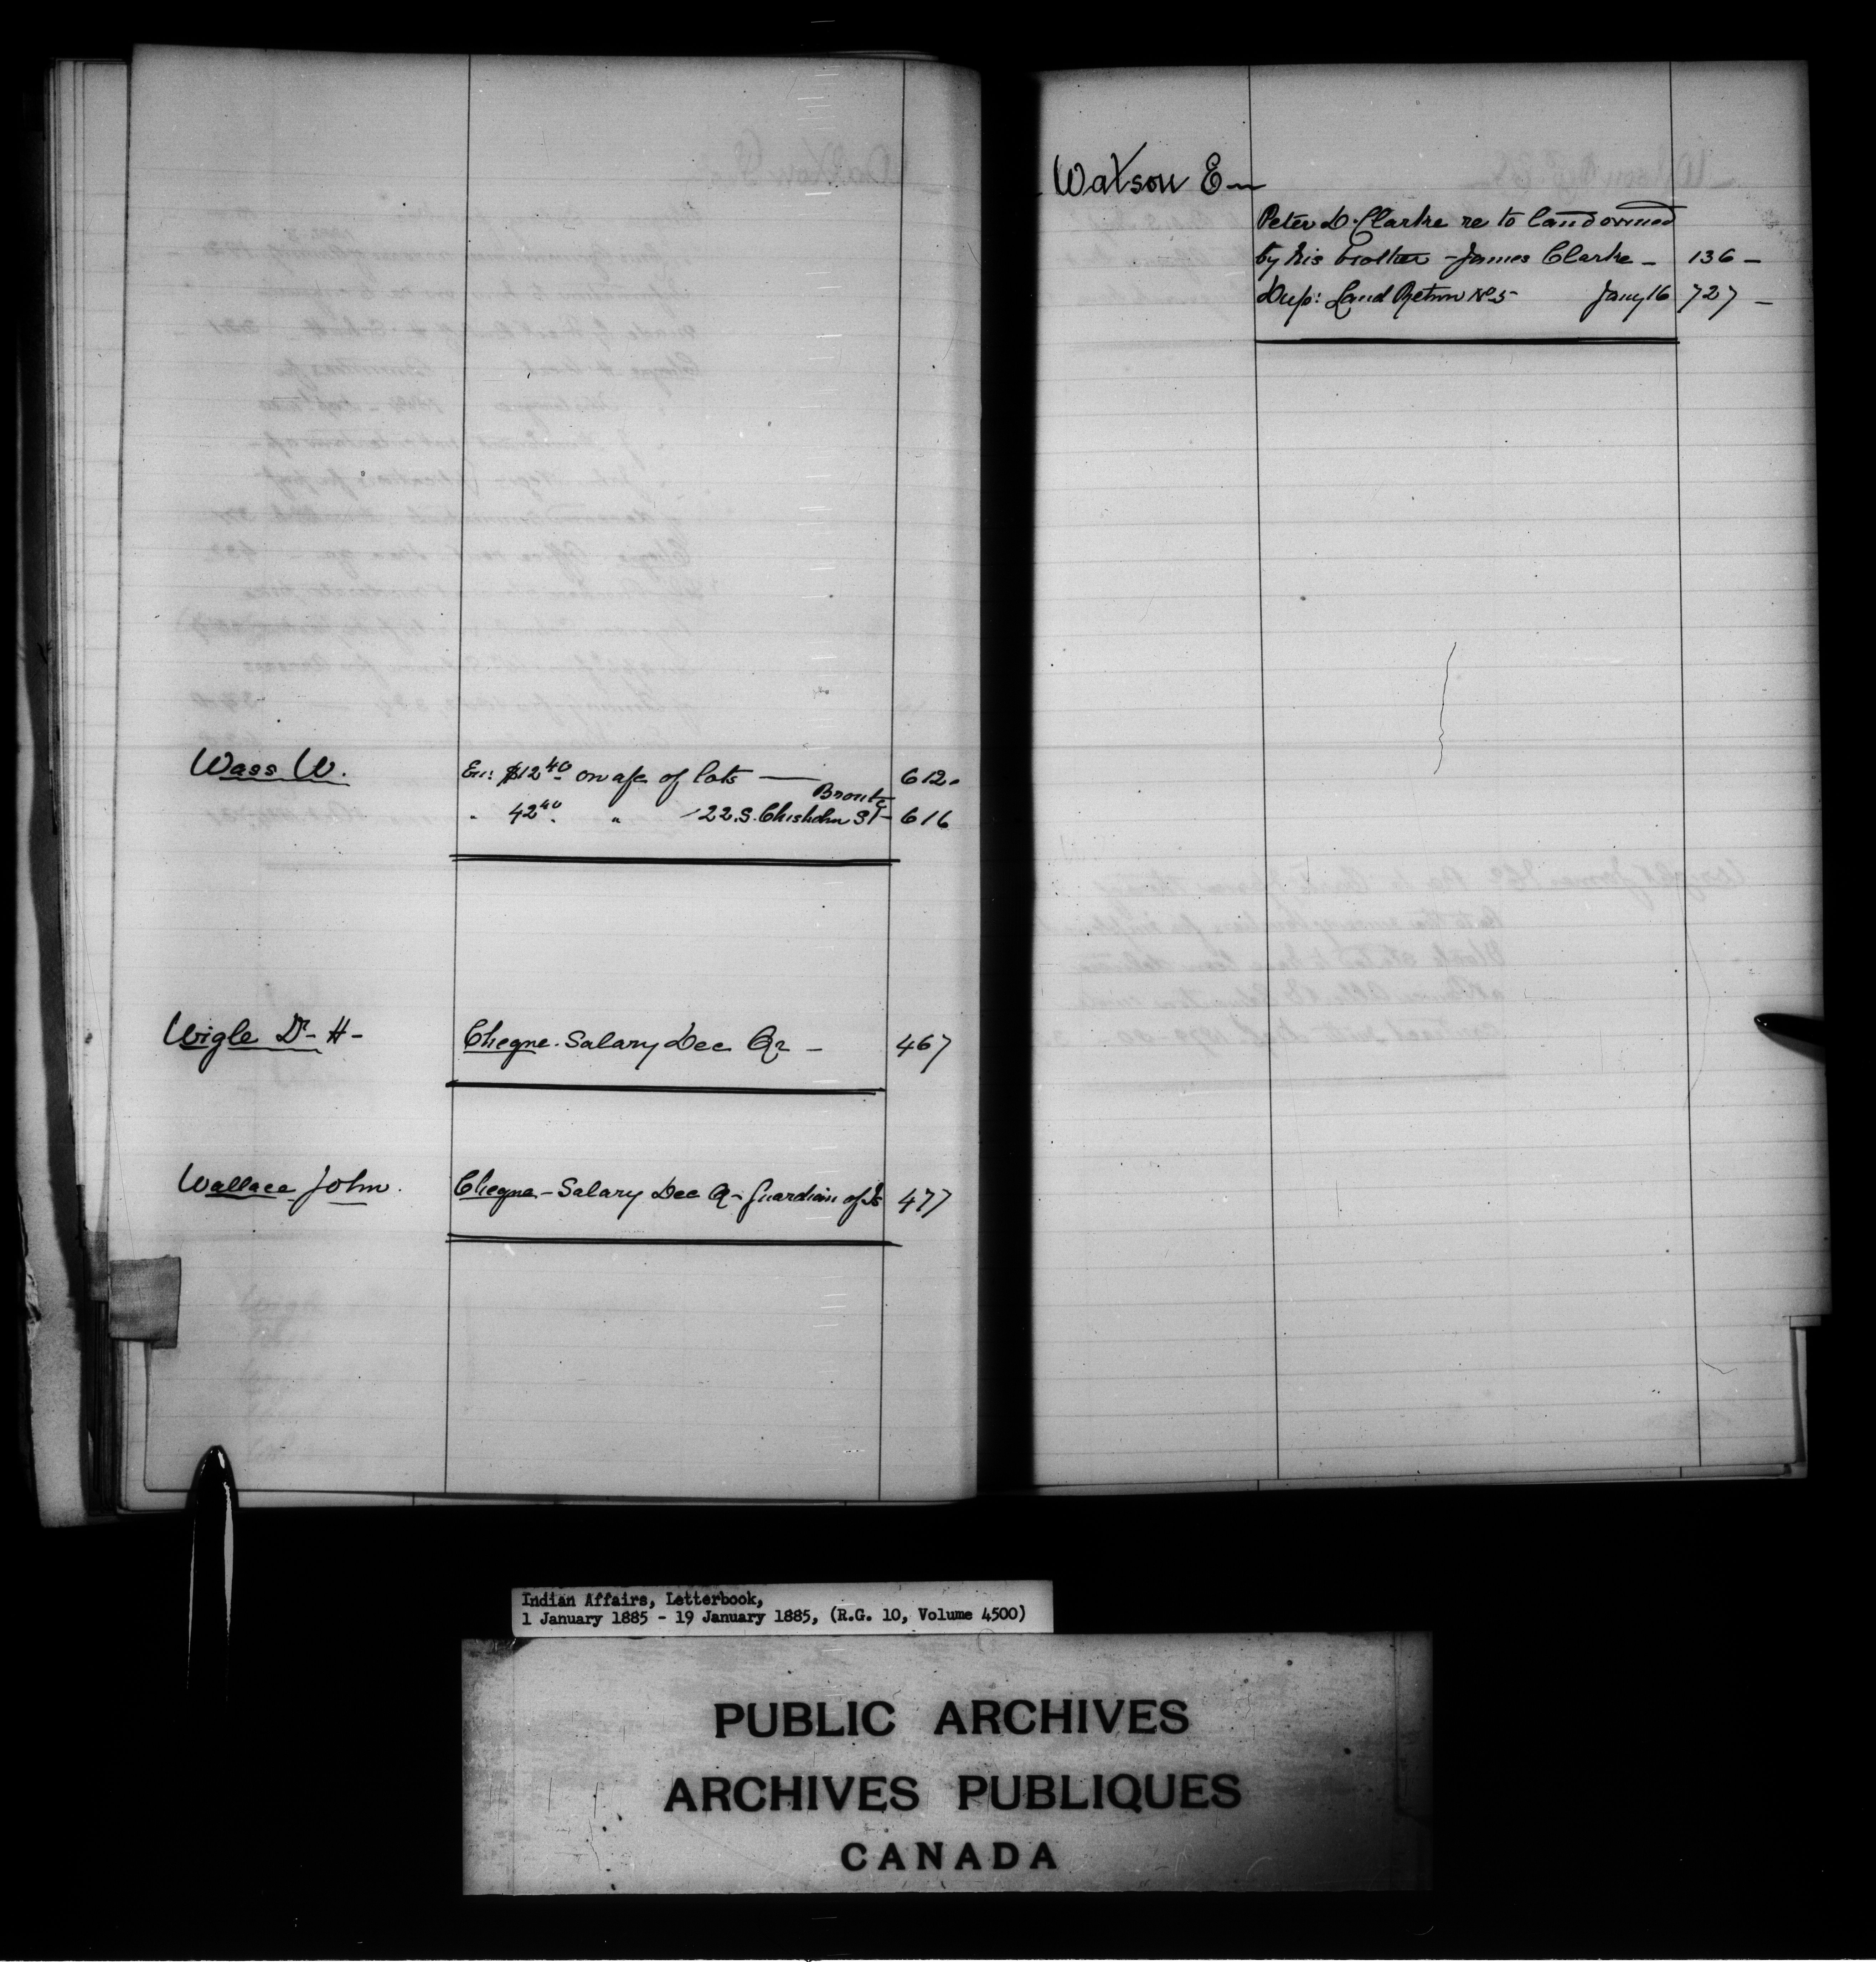 Wass W.
En: $12.40 on a/c of lots — 612.
Bronte
" 42.40 " 22.S. Chisholm St - 616
Wigle Dr - H -
Cheqne. Salary Dec Qr - 467
Wallace John.
Cheqne - Salary Dec Qr - Guardian of Is 477
Watson E -
Peter D. Clarke re to land owned
by his brother - James Clarke - 136 -
Dup: Land Return No 5 Jany 16 727 -
Indian Affairs, Letterbook,
1 January 1885 - 19 January 1885, (R.G. 10, Volume 4500)
PUBLIC ARCHIVES
ARCHIVES PUBLIQUES
CANADA